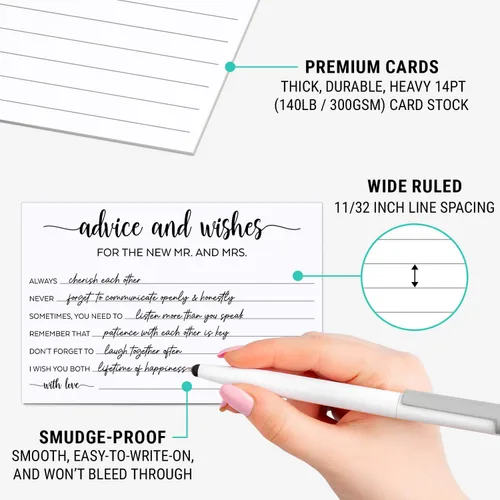 PREMIUM CARDS
THICK, DURABLE, HEAVY 14PT
(140LB / 300GSM) CARD STOCK
WIDE RULED
11/32 INCH LINE SPACING
advice and wishes
FOR THE NEW MR. AND MRS.
ALWAYS cherish each other
NEVER forget to communicate openly & honestly
SOMETIMES, YOU NEED TO listen more than you speak
REMEMBER THAT patience with each other is key
DON'T FORGET TO laugh together often
I WISH YOU BOTH lifetime of happiness
with love
SMUDGE-PROOF
SMOOTH, EASY-TO-WRITE-ON,
AND WON'T BLEED THROUGH